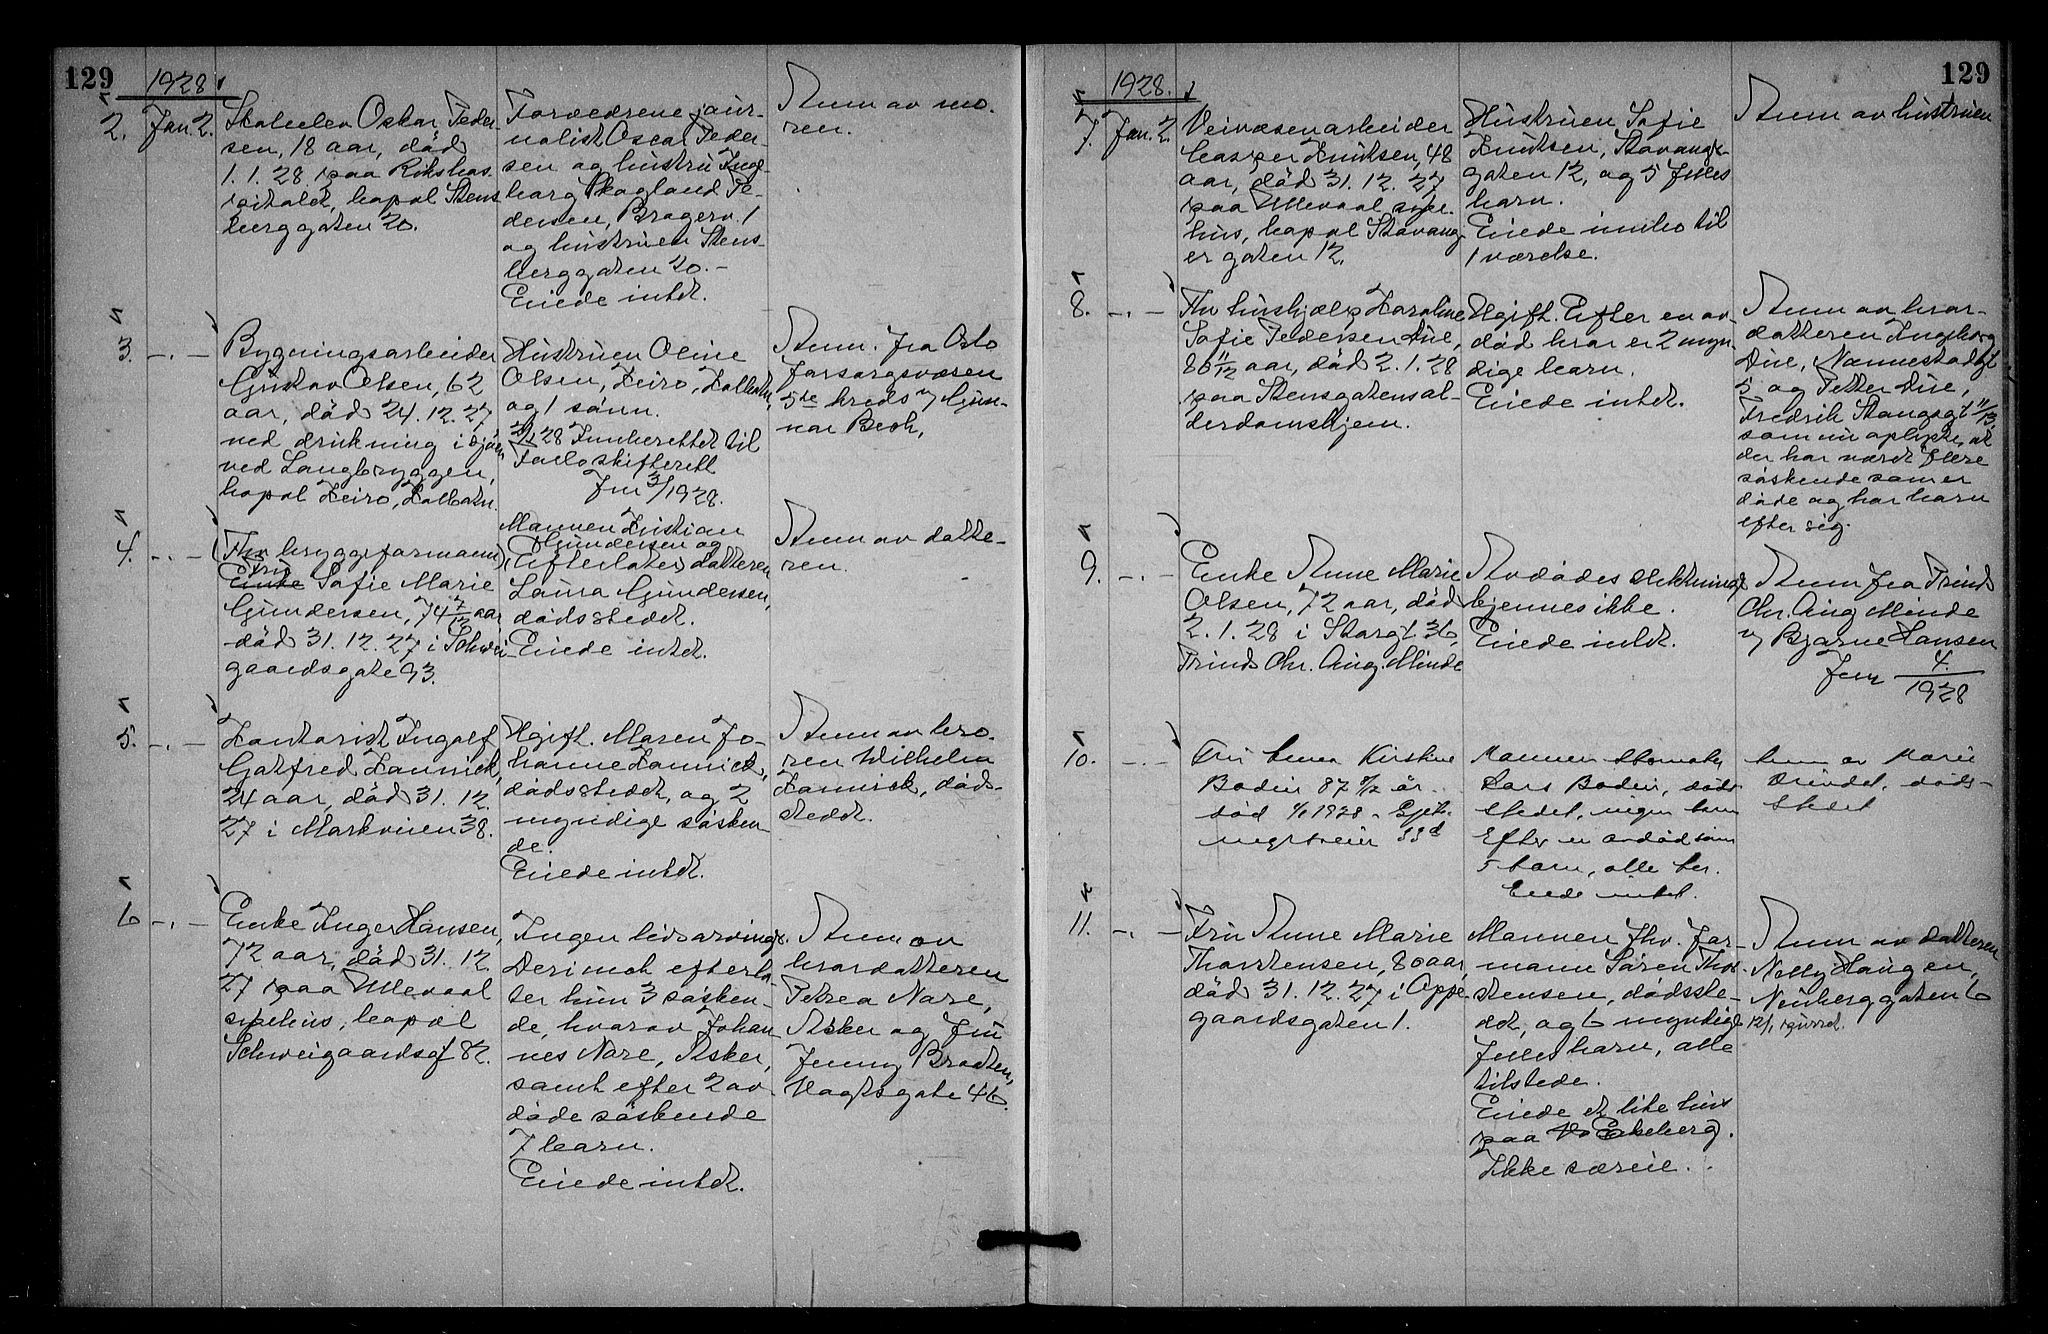 129
1928
2. Jan. 2.
Skoleelev Oskar Peder-
sen, 18 aar, död
1. 1. 28 paa Rikshos-
pitalet, bopæl Stens
berggaten 20.
Forældrene jour-
nalist Oscar Peder-
sen og hustru Inge-
borg Skogland Pe-
dersen, Bragerv. 1
og hustruen Stens-
berggaten 20.-
Eiede intet.
Anm av mo-
ren.
3. -.-
Bygningsarbeider
Gustav Olsen, 62
aar, död 24. 12. 27
ved drukning i sjöen
ved Langbryggen,
bopæl Feiro, Kolbotn.
Hustruen Oline
Olsen, Feiro, Kolbotn,
og 1 sönn.
28 Innberettet til
Follo skifterett
Jnr 3/1928.
Anm. fra Oslo
forsorgsvæsen
5te kreds v/ Gun-
nar Bech,
4. -.-
(Fhv bryggeformann)
Fru
Enke Sofie Marie
Gundersen, 74 7/12 aar
död 31. 12. 27 i Schwei-
gaardsgate 93.
Mannen Kristian
Gundersen og
Efterlater datteren
Laura Gundersen,
dödsstedet.
Eiede intet.
Anm av datte-
ren.
5. -.-
Kontorist Ingolf
Gotfred
24 aar, död 31. 12.
27 i Markveien 38.
Ugift. Moren Jo-
hanne
dödsstedet, og 2
myndige søsken-
de.
Eiede intet.
Anm av bro-
ren Wilhelm
döds-
stedet.
6 -.-
Enke Inger Hansen,
72 aar, död 31. 12.
27 paa Ullevaal
sykehus, bopæl
Schweigaardsgt 82.
Ingen livsarvinge.
Derimot efterla-
ter hun 3 søsken-
de, hvorav Johan-
nes Nare, Asker,
samt efter 2 av-
döde søskende
7 barn.
Eiede intet.
Anm av
brordatteren
Petrea Nare,
Asker og Fru
Jenny Braaten,
Vogtsgate 46.
129
1928.
7. Jan. 2.
Veivæsenarbeider
Casper Knutsen, 48
aar, död 31. 12. 27
paa Ullevaal syke-
hus, bopæl Stavang-
er gaten 12.
Hustruen Sofie
Knutsen, Stavanger-
gaten 12, og 5 felles
barn.
Eiede innbo til
1 værelse.
Anm av hustruen
8. -.-
Fhv hushjælp Karoline
Sofie Pedersen Due,
80 11/12 aar, död 2. 1. 28
paa Stensgatens al-
derdomshjem.
Ugift. Efter en av-
död bror er 2 myn-
dige barn.
Eiede intet.
Anm av bror-
datteren Ingeborg
Due, Nannestadgt
5 og Petter Due,
Fredrik Stangsgt 11/13,
som nu oplyste, at
der har været flere
søskende som er
döde og har barn
efter sig.
9. -.-
Enke Anne Marie
Olsen, 72 aar, död
2. 1. 28 i Storgt 36,
Trinds Chr. Aug. Minde
Avdödes slektninge
kjennes ikke.
Eiede intet.
Anm fra Trinds
Chr. Aug Minde
v/ Bjarne Hansen
Jnr 4/1928
10. -.-
Fru Lena Kirstine
Bodin 87 8/12 år.
död 1/1 1928
33d
Mannen
Lars Bodin, döds-
stedet, ingen barn
Efter en avdöd sönn
5 barn, alle her.
Eiede intet.
Anm av Marie
döds-
stedet
11. -.-
Fru Anne Marie
Thorstensen, 80 aar,
död 31. 12. 27 i Oppe-
gaardsgaten 1.
Mannen fhv. for-
mann Sören Thor-
stensen, dödsste-
det, og 6 myndige
felles barn, alle
tilstede.
Eiede et lite hus
paa Ekeberg.
Ikke særeie.
Anm av datteren
Nelly Haugen,
Neuberggaten 6